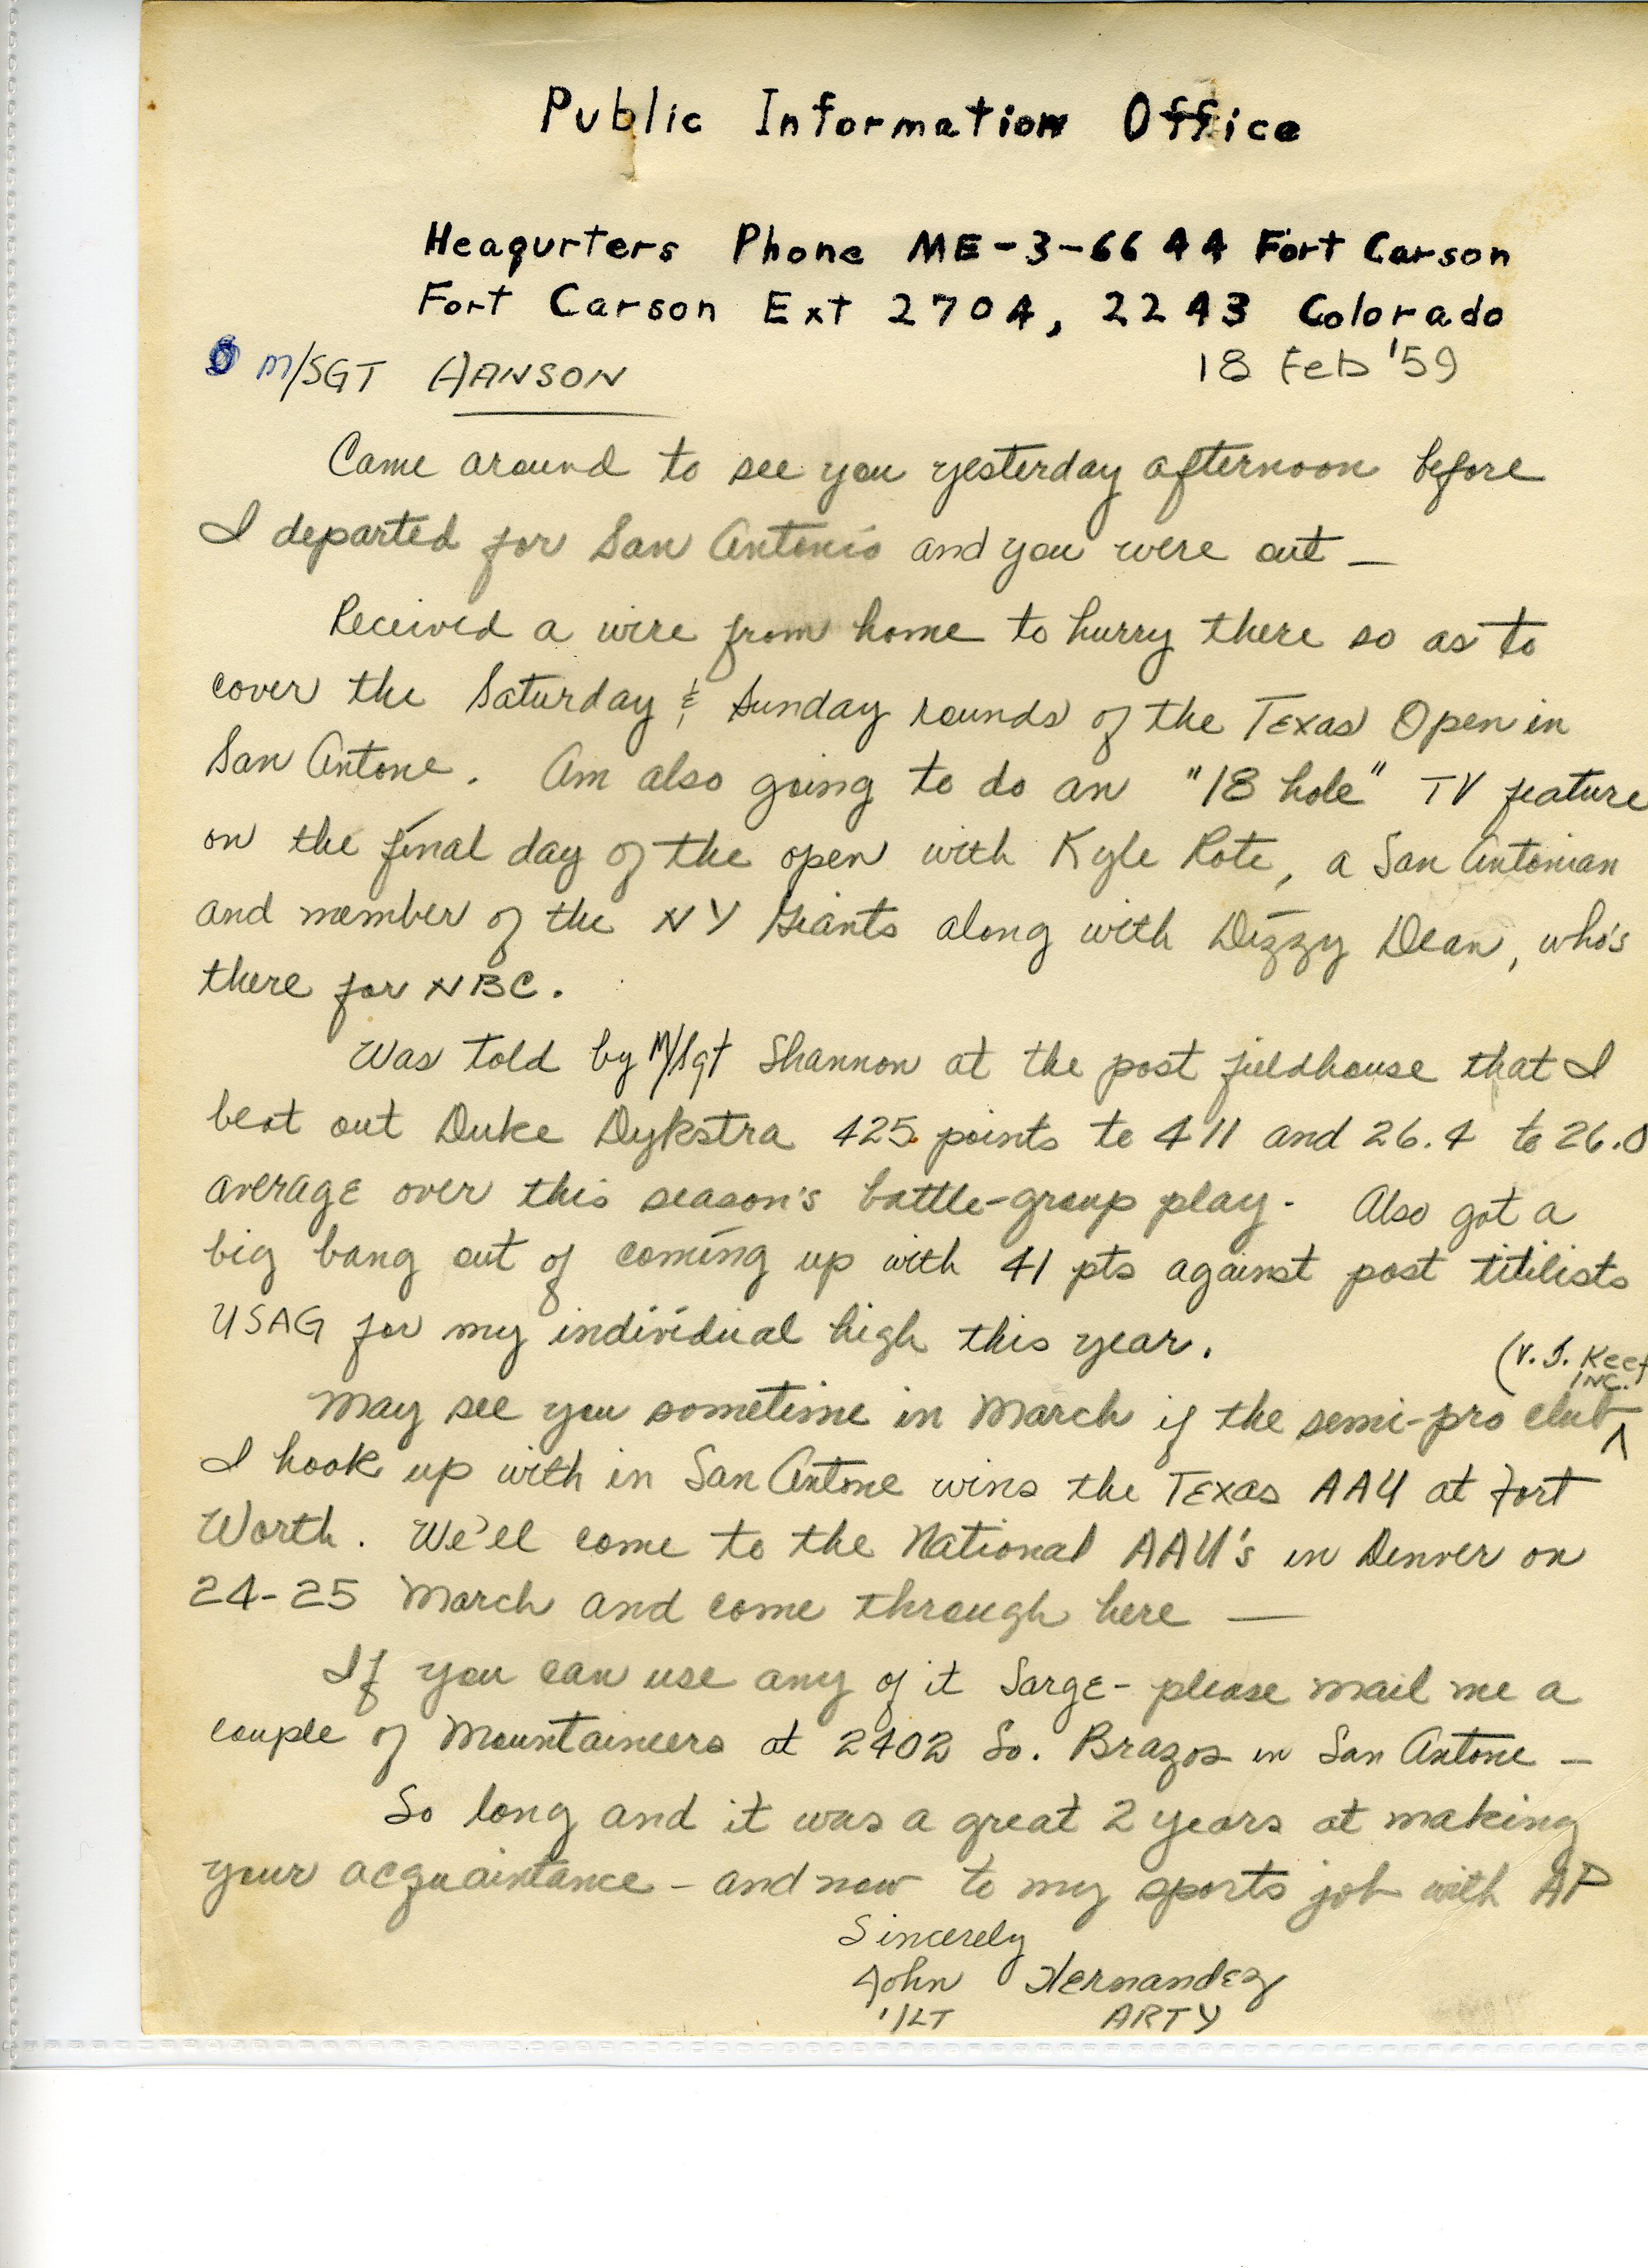 Public Information Office
Heaqurters Phone ME-3-6644 Fort Carson
Fort Carson Ext 2704, 2243 Colorado
M/SGT HANSON 18 Feb '59
Came around to see you yesterday afternoon before
I departed for San Antonio and you were out —
Received a wire from home to hurry there so as to
cover the Saturday & Sunday rounds of the Texas Open in
San Antone. Am also going to do an "18 hole" TV feature
on the final day of the open with Kyle Rote, a San Antonian
and member of the NY Giants along with Dizzy Dean, who's
there for NBC.
Was told by M/Sgt Shannon at the post fieldhouse that I
beat out Duke Dykstra 425 points to 411 and 26.4 to 26.0
average over this season's battle-group play. Also got a
big bang out of coming up with 41 pts against post titilists
USAG for my individual high this year.
(V. J. Keef
INC.)
May see you sometime in March if the semi-pro club ^
I hook up with in San Antone wins the Texas AAU at Fort
Worth. We'll come to the National AAU's in Denver on
24-25 March and come through here —
If you can use any of it Sarge - please mail me a
couple of Mountaineers at 2402 So. Brazos in San Antone —
So long and it was a great 2 years at making
your acquaintance - and now to my sports job with AP
Sincerely
John Hernandez
1/LT ARTY